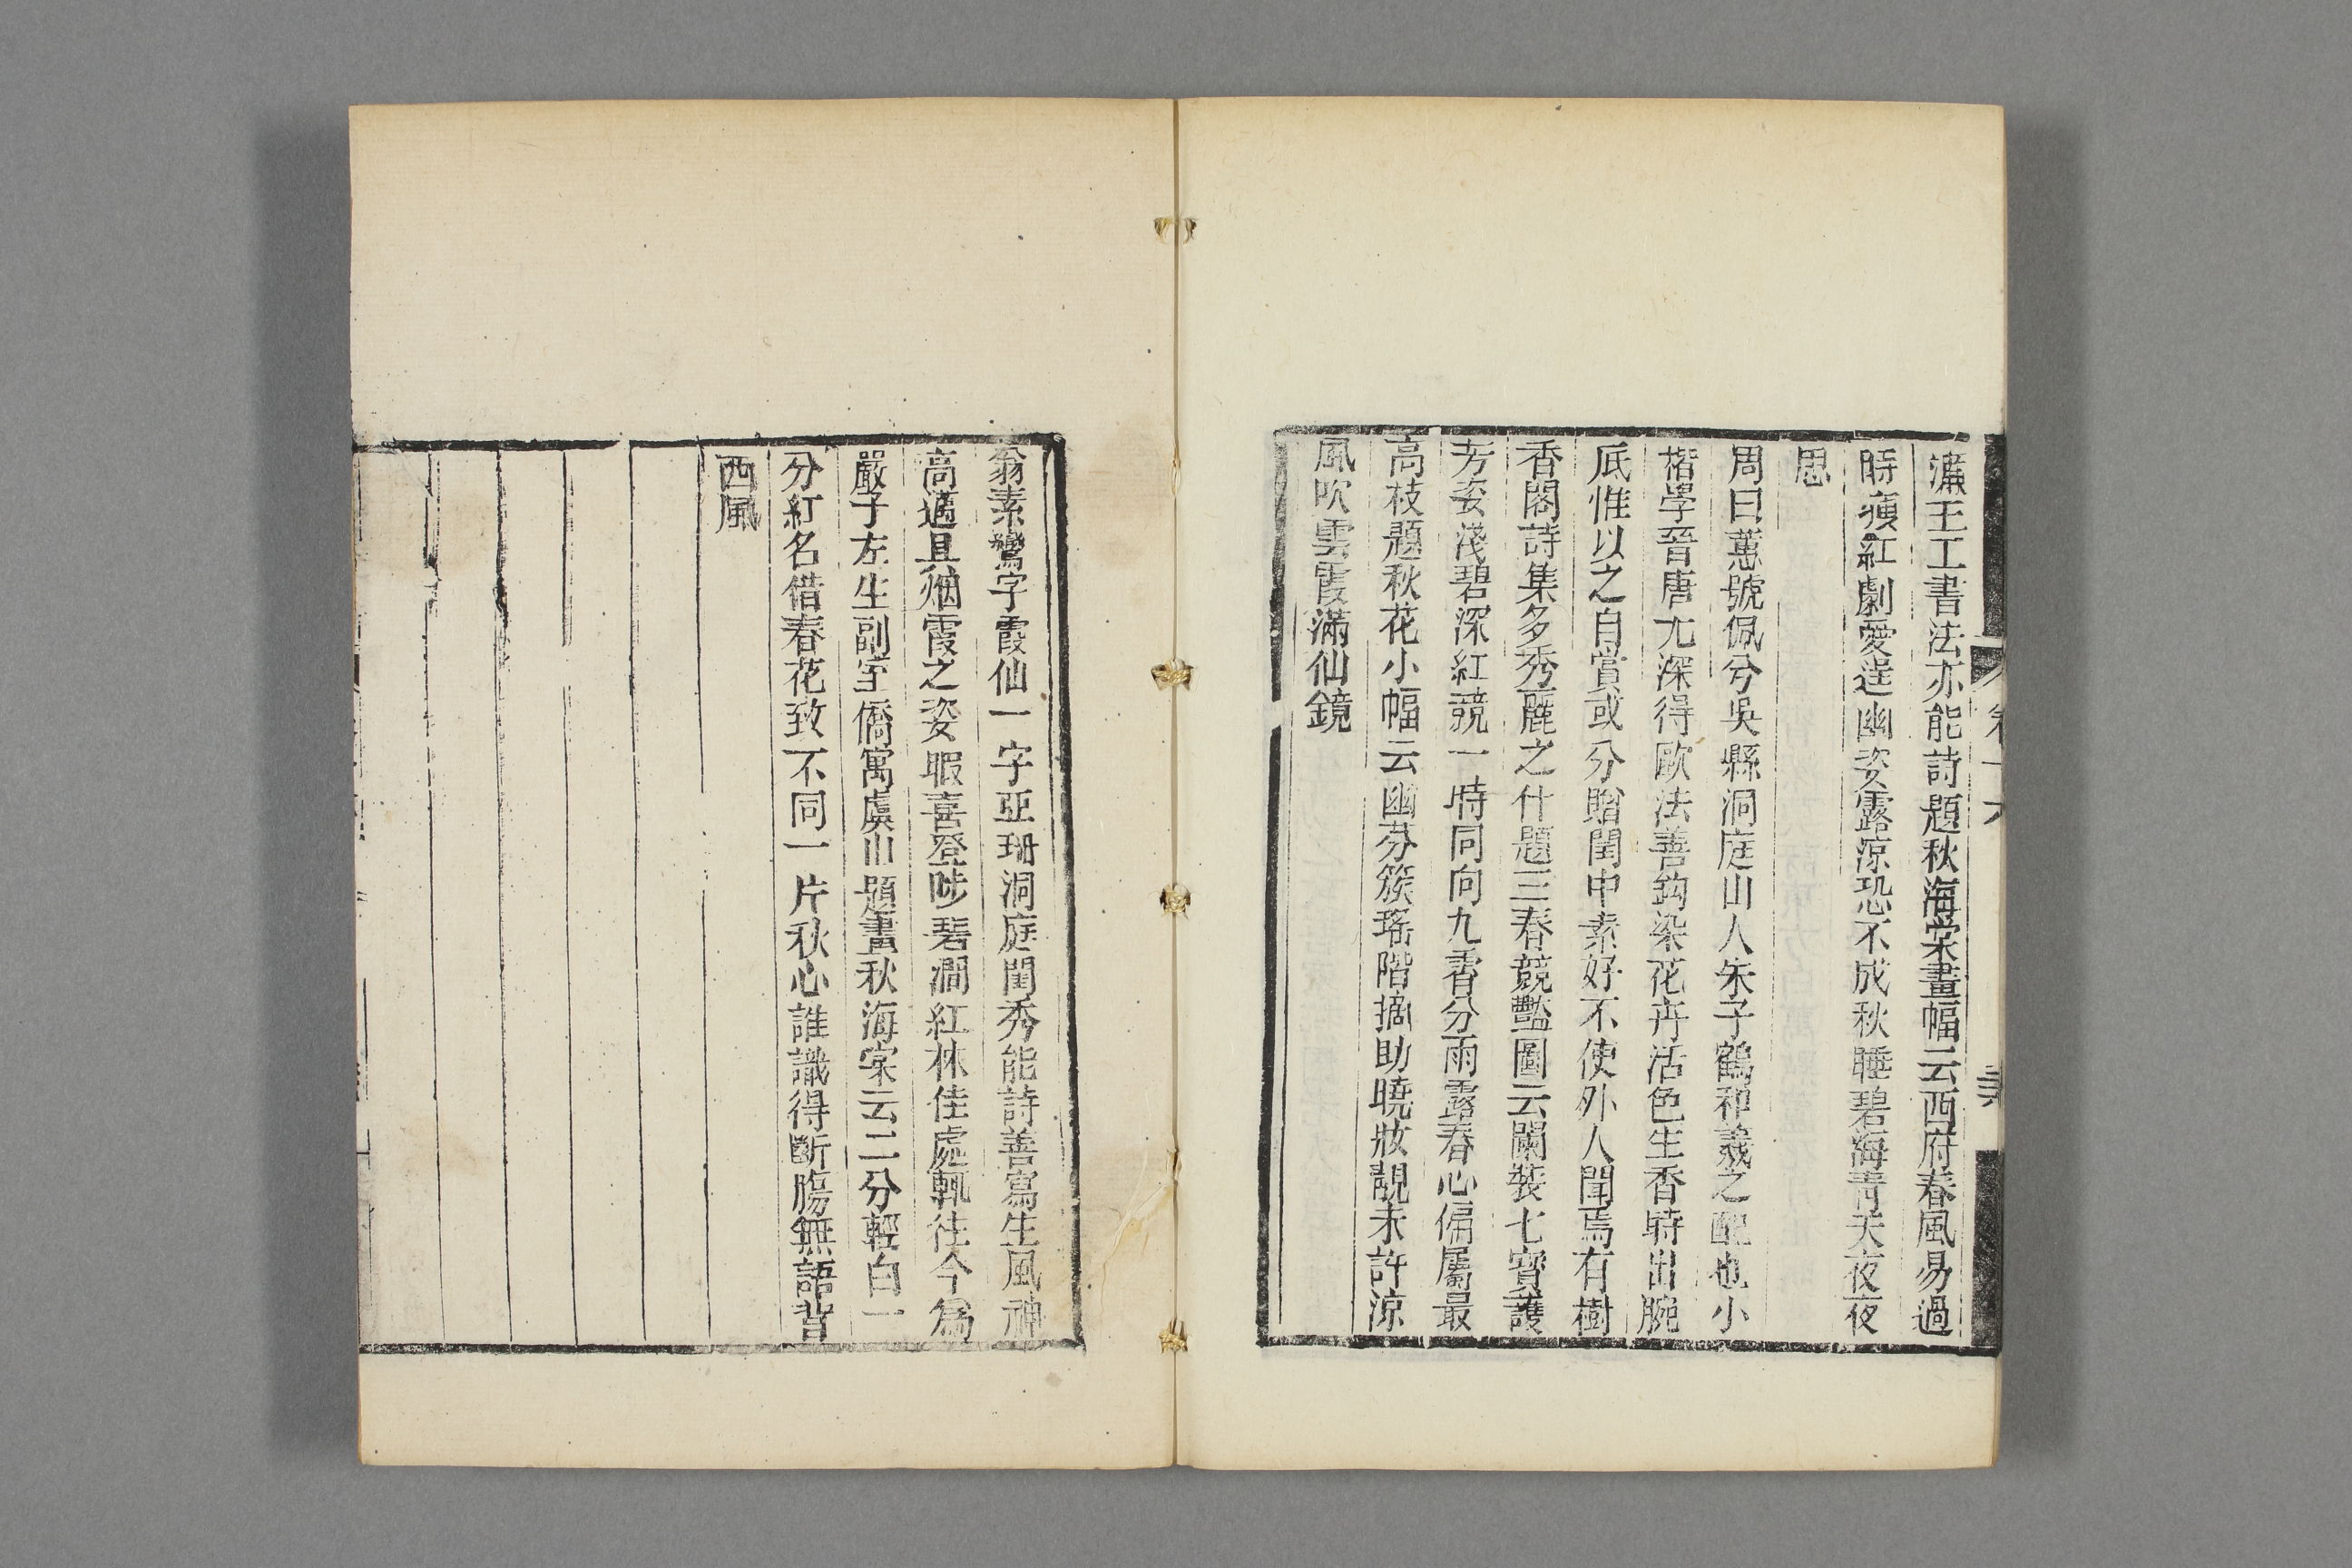 瀟王工書法亦能詩題秋海棠畫幅云西府春風易過
時痕紅劇愛逞幽姿露涼恐不成秋睡碧海靑天夜夜
思
周曰蕙號佩兮吳縣洞庭山人朱子鶴和羲之配也小
楷學晉唐尤深得歐法善鈎染花卉活色生香時出腕
底惟以之自賞或分贈閨中素好不使外人聞焉有樹
香閣詩集多秀麗之什題三春競艷圖云闌裝七寶護
芳姿淺碧深紅競一時同向九霄分雨露春心偏屬最
高枝題秋花小幅云幽芬簇簇瑤階摘助曉妝靚未許涼
風吹雲霞滿仙鏡
卷十六
翁素鸞字霞仙一字亞珊洞庭閨秀能詩善寫生風神
高邁具烟霞之姿暇喜登陟碧澗紅林佳處輒往今爲
嚴子左生副室僑寓虞山題畫秋海棠云二分輕白一
分紅名借春花致不同一片秋心誰識得斷腸無語背
西風